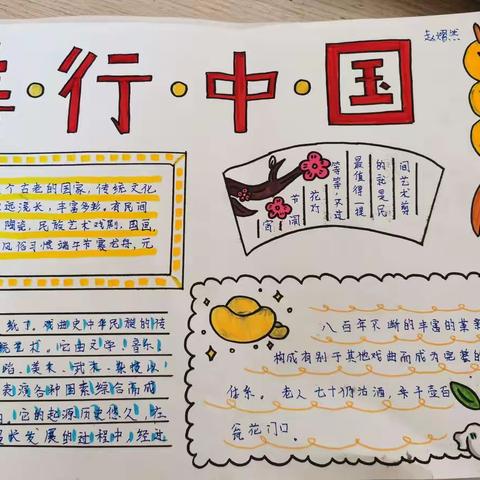 行·中·国
赵熠然
个古老的国家，传统文化
远流长，丰富多彩。有民间
陶瓷，民族艺术戏剧，国画，
风俗习惯端午节赛龙舟，元
宵 节 花 等 最 的 间
闹 灯 等 值 就 艺
，不过 得一提 是民 术剪
纸了。戏曲史中华民族的传
统艺术。它由文学，音乐
蹈、美术、武术、杂技以
表演各种因素综合而成
的，它的起源历史悠久，在
漫长发展的过程中，经过
八百年不断的丰富的革新
构成有别于其他戏曲而成为完整的
体系。老人七十仍沽酒，千千壶百
瓮花门口